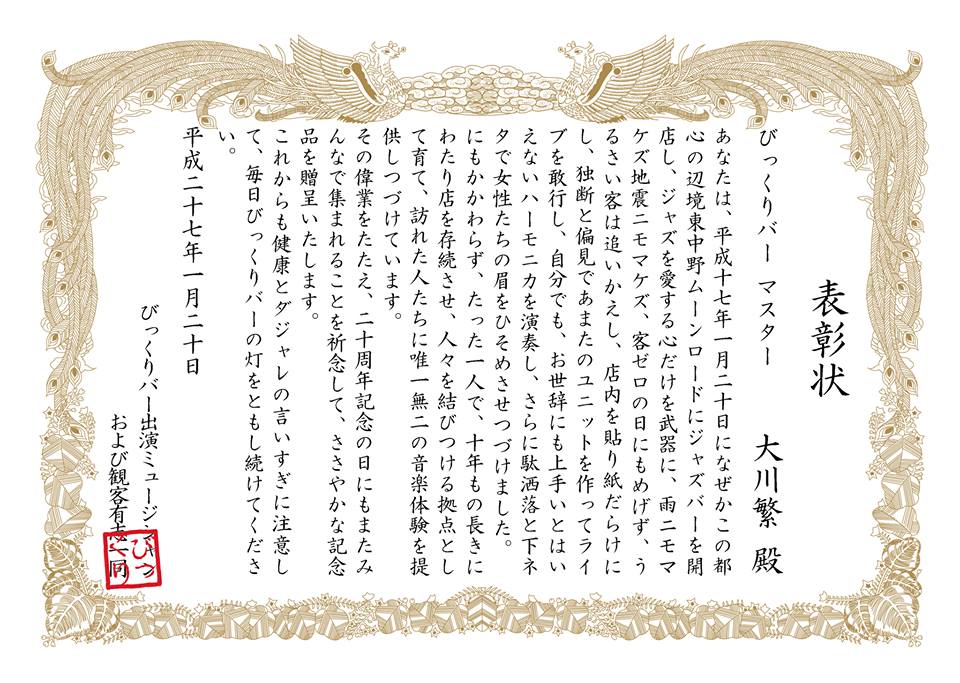 表彰状
びっくりバー マスター 大川繁 殿
あなたは、平成十七年一月二十日になぜかこの都
心の辺境東中野ムーンロードにジャズバーを開
店し、ジャズを愛する心だけを武器に、雨ニモマ
ケズ地震ニモマケズ、客ゼロの日にもめげず、う
るさい客は追いかえし、店内を貼り紙だらけに
し、独断と偏見であまたのユニットを作ってライ
ブを敢行し、自分でも、お世辞にも上手いとはい
えないハーモニカを演奏し、さらに駄洒落と下ネ
タで女性たちの眉をひそめさせつづけました。
にもかかわらず、たった一人で、十年もの長きに
わたり店を存続させ、人々を結びつける拠点とし
て育て、訪れた人たちに唯一無二の音楽体験を提
供しつづけています。
その偉業をたたえ、二十周年記念の日にもまたみ
んなで集まれることを祈念して、ささやかな記念
品を贈呈いたします。
これからも健康とダジャレの言いすぎに注意し
て、毎日びっくりバーの灯をともし続けてくださ
い。
平成二十七年一月二十日
びっくりバー出演ミュージシャン
および観客有志一同
びっくり